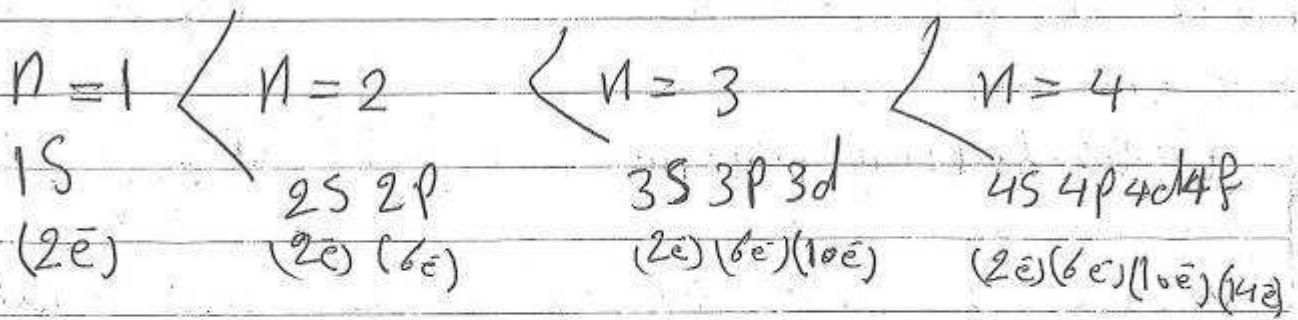 n = 1 < n = 2 < n = 3 < n = 4
1S 2S 2P 3S 3P 3d 4S 4P 4d 4f
(2ē) (2ē) (6ē) (2ē) (6ē) (10ē) (2ē) (6ē) (10ē) (14ē)